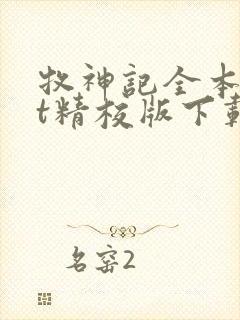 牧神記全本
t精校版下載
名窑2